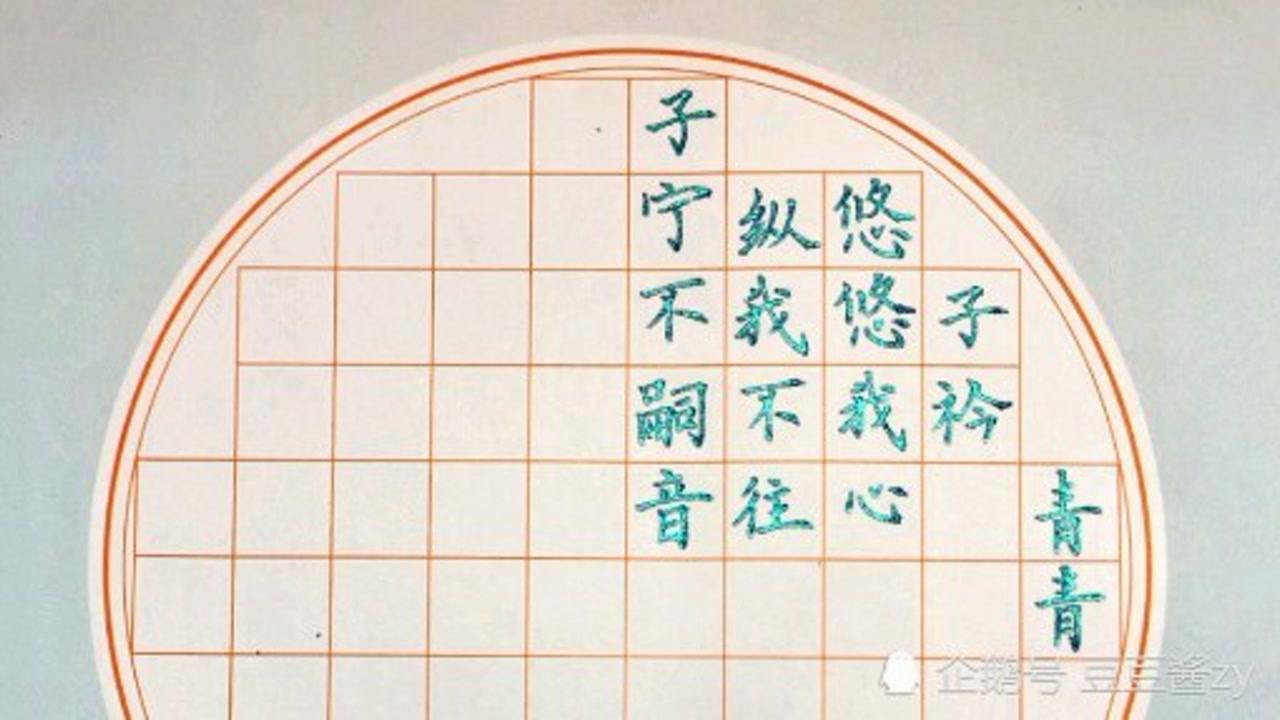 青青
子衿
悠悠我心
纵我不往
子宁不嗣音
企鹅号 豆豆酱zy